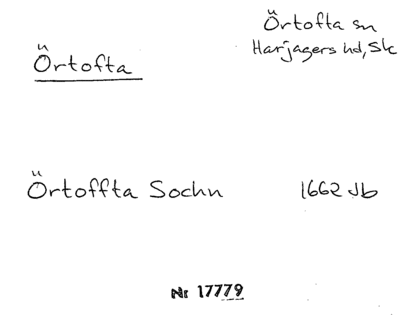 Örtofta
Örtofta sn
Harjagers hd, Sk
Örtoffta Sochn 1662 Jb
Nr 17779